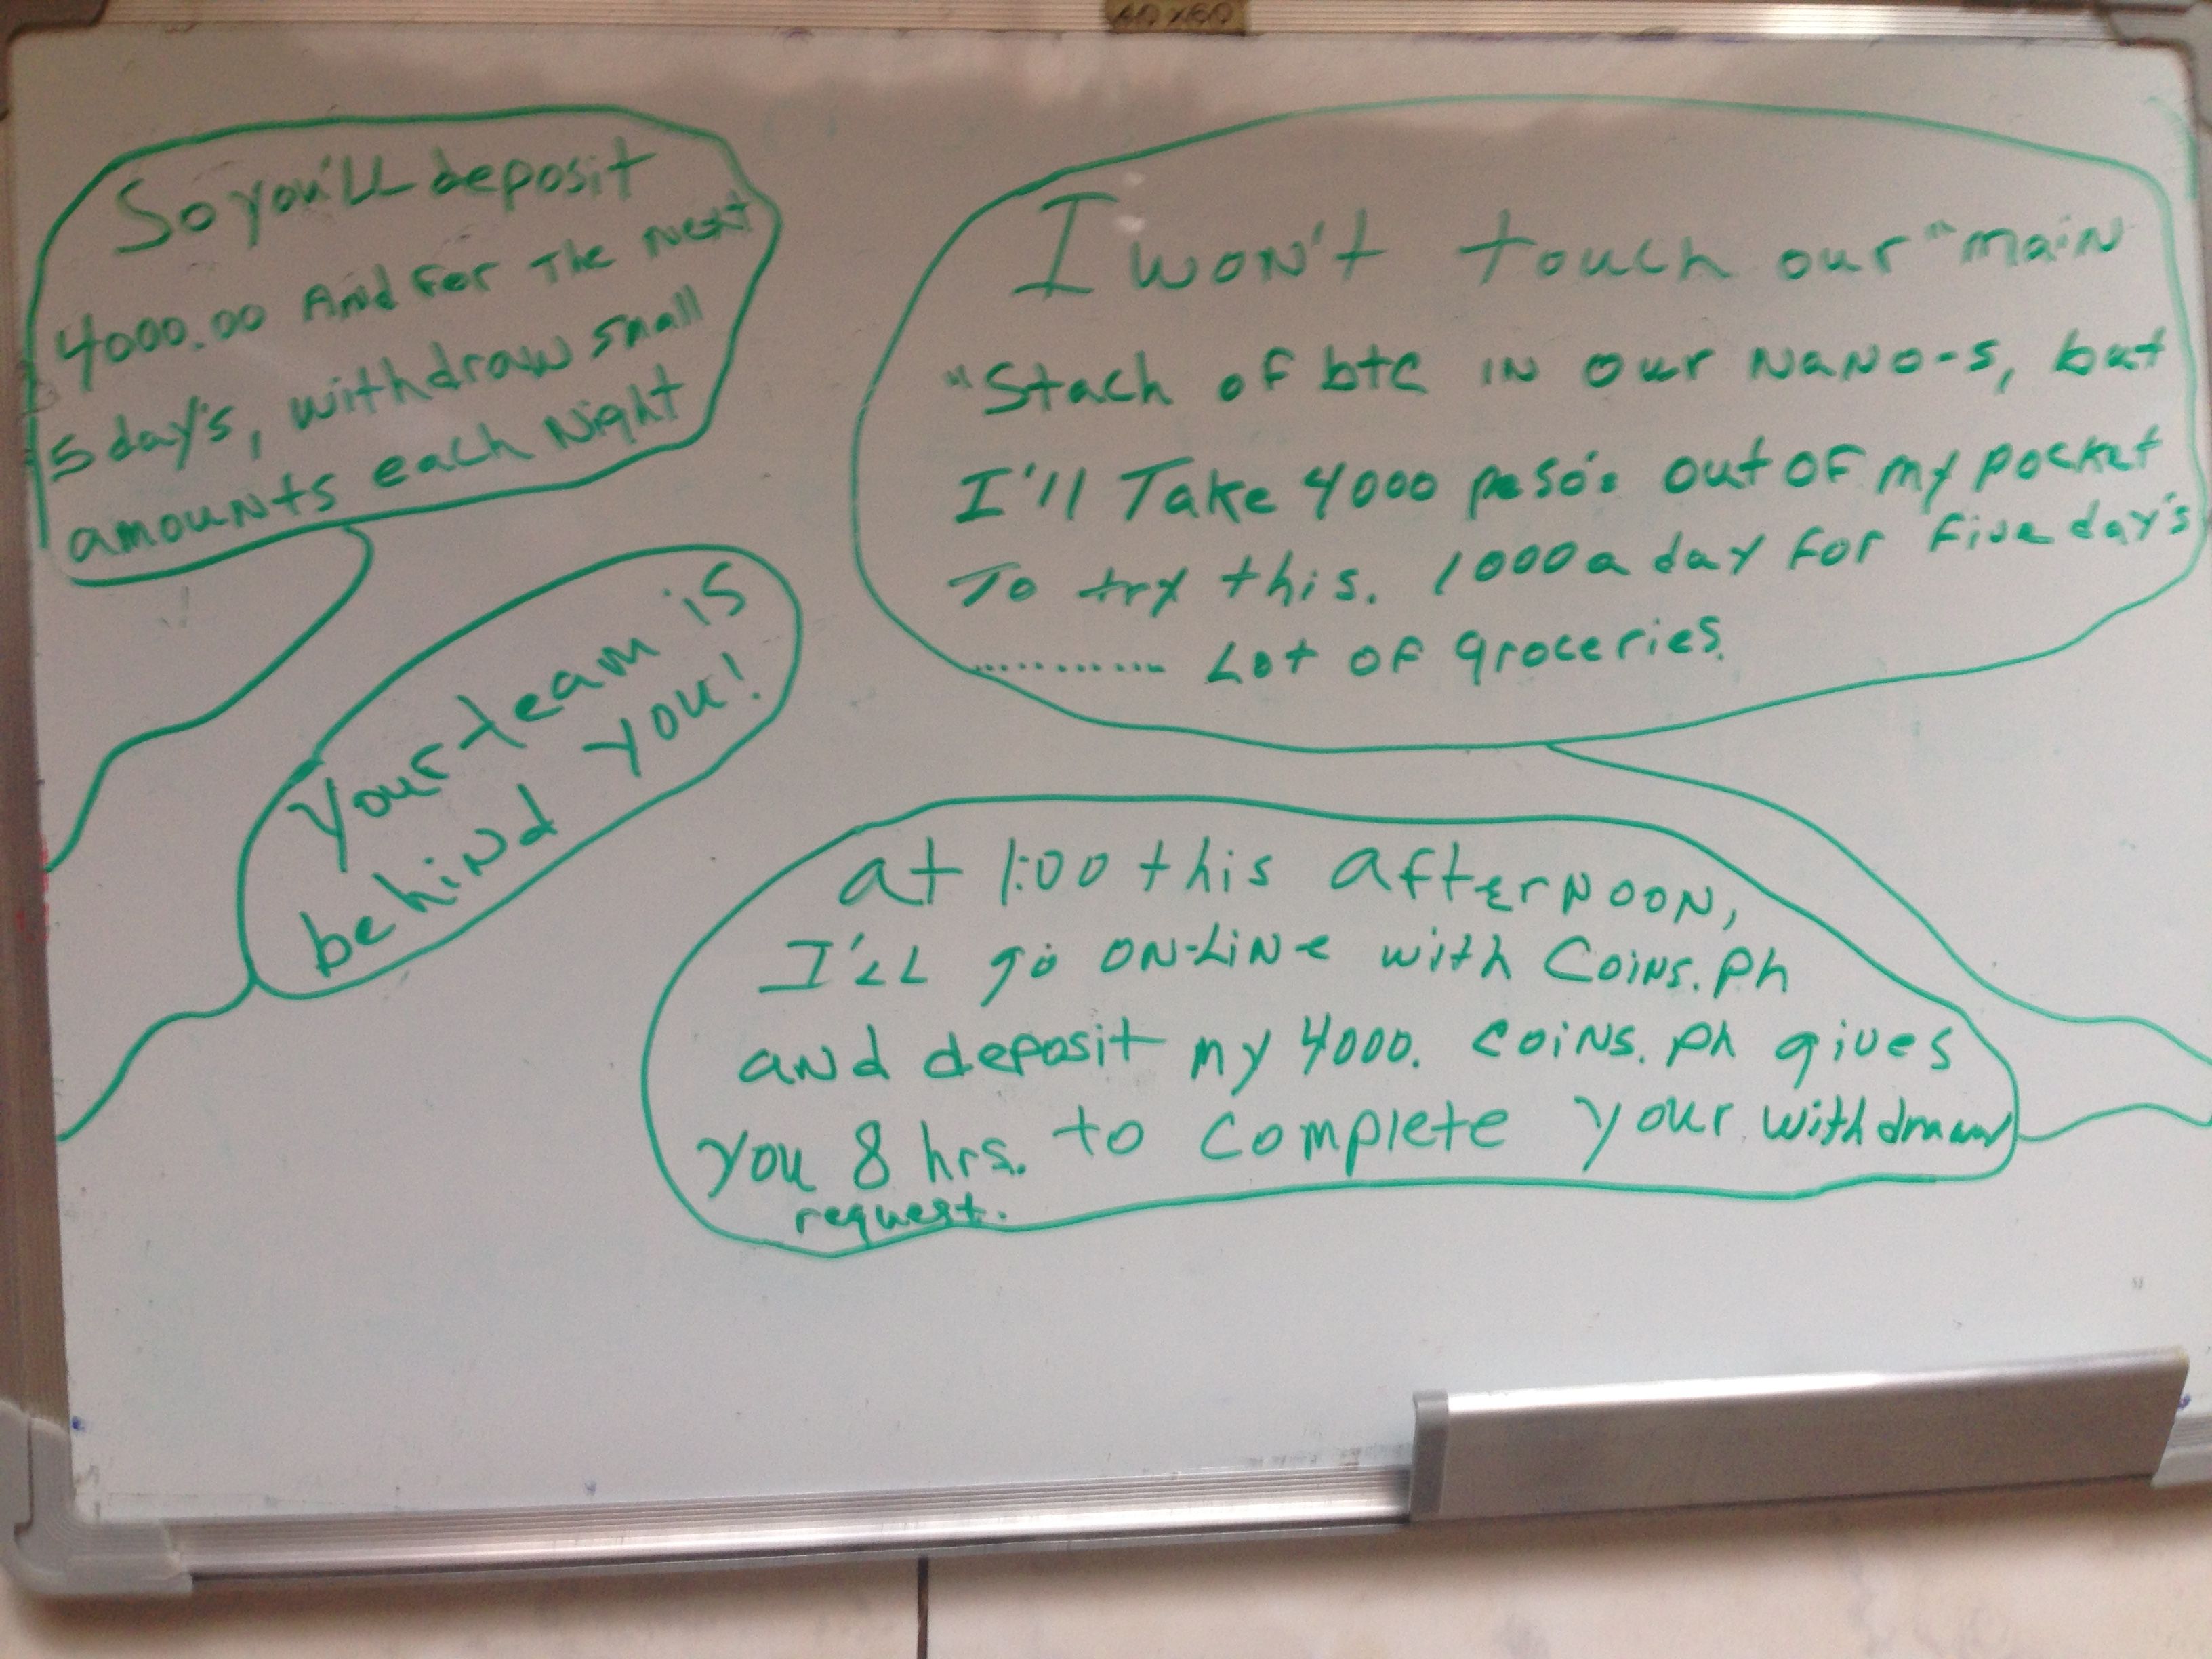 60x60
So you'LL deposit
4000.00 And For The Next
5 day's, withdraw small
amounts each Night
I won't touch our "main
"Stach of btc in our NaNo-s, but
I'll Take 4000 peso's out of my pocket
To try this. 1000 a day for five day's
............ Lot of groceries.
Your team is
behind you!
at 1:00 this afternoon,
I'LL go on-Line with Coins.ph
and deposit my 4000. Coins.ph gives
you 8 hrs. to complete your withdraw
request.